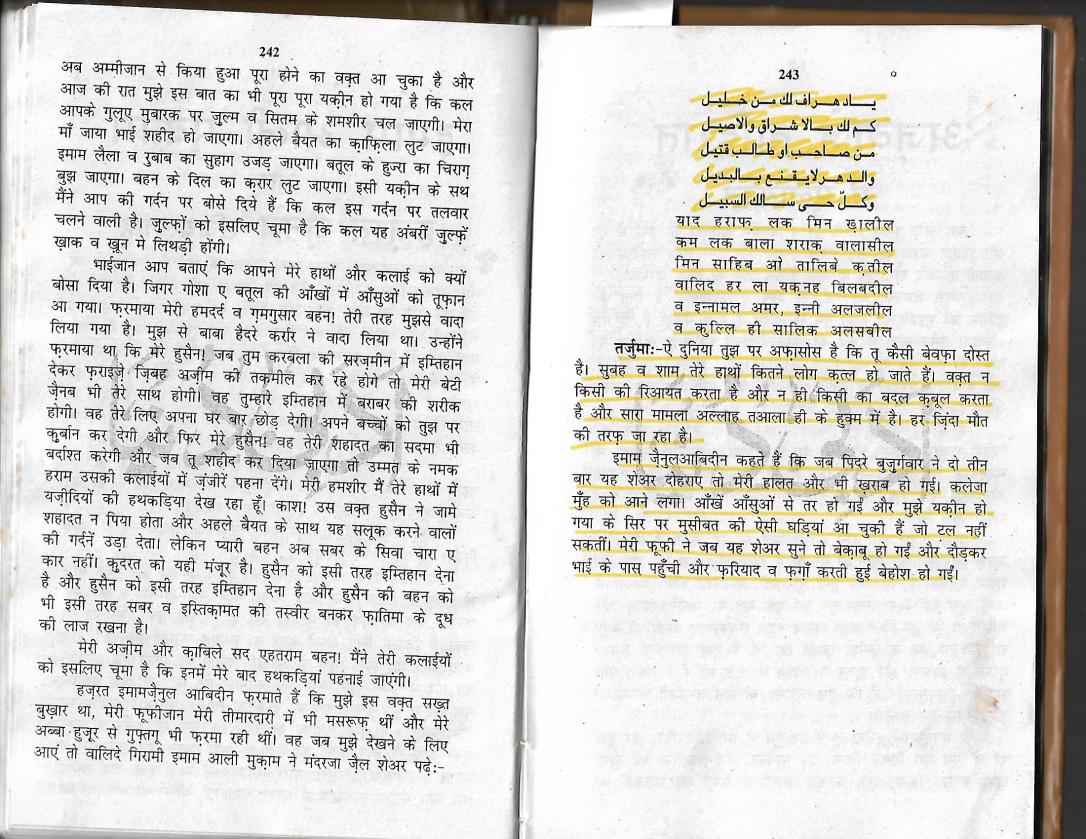 242
अब अम्मीजान से किया हुआ पूरा होने का वक्त आ चुका है और
आज की रात मुझे इस बात का भी पूरा पूरा यक़ीन हो गया है कि कल
आपके गुलूए मुबारक पर जुल्म व सितम के शमशीर चल जाएगी। मेरा
माँ जाया भाई शहीद हो जाएगा। अहले बैयत का काफ़िला लुट जाएगा।
इमाम लैला व रुबाब का सुहाग उजड़ जाएगा। बतूल के हुज्रा का चिराग़
बुझ जाएगा। बहन के दिल का क़रार लुट जाएगा। इसी यक़ीन के सथ
मैंने आप की गर्दन पर बोसे दिये हैं कि कल इस गर्दन पर तलवार
चलने वाली है। जुल्फ़ों को इसलिए चूमा है कि कल यह अंबरीं जुल्फ़ें
ख़ाक व ख़ून मे लिथड़ी होंगी।
भाईजान आप बताएं कि आपने मेरे हाथों और कलाई को क्यों
बोसा दिया है। जिगर गोशा ए बतूल की आँखों में आँसुओं को तूफ़ान
आ गया। फ़रमाया मेरी हमदर्द व ग़मगुसार बहन! तेरी तरह मुझसे वादा
लिया गया है। मुझ से बाबा हैदरे कर्रार ने वादा लिया था। उन्होंने
फ़रमाया था कि मेरे हुसैन! जब तुम करबला की सरज़मीन में इम्तिहान
देकर फ़राइज़े ज़िबह अज़ीम की तकमील कर रहे होगे तो मेरी बेटी
ज़ैनब भी तेरे साथ होगी। वह तुम्हारे इम्तिहान में बराबर की शरीक
होगी। वह तेरे लिए अपना घर बार छोड़ देगी। अपने बच्चों को तुझ पर
कुर्बान कर देगी और फिर मेरे हुसैन! वह तेरी शहादत का सदमा भी
बर्दाश्त करेगी और जब तू शहीद कर दिया जाएगा तो उम्मत के नमक
हराम उसकी कलाईयों में ज़ंजीरें पहना देंगे। मेरी हमशीर मैं तेरे हाथों में
यज़ीदियों की हथकड़िया देख रहा हूँ! काश! उस वक़्त हुसैन ने जामे
शहादत न पिया होता और अहले बैयत के साथ यह सलूक करने वालों
की गर्दनें उड़ा देता। लेकिन प्यारी बहन अब सबर के सिवा चारा ए
कार नहीं। कुदरत को यही मंजूर है। हुसैन को इसी तरह इम्तिहान देना
है और हुसैन को इसी तरह इम्तिहान देना है और हुसैन की बहन को
भी इसी तरह सबर व इस्तिक़ामत की तस्वीर बनकर फ़ातिमा के दूध
की लाज रखना है।
मेरी अज़ीम और क़ाबिले सद एहतराम बहन! मैंने तेरी कलाईयों
को इसलिए चूमा है कि इनमें मेरे बाद हथकड़ियां पहनाई जाएंगी।
हज़रत इमामज़ैनुल आबिदीन फ़रमाते हैं कि मुझे इस वक्त सख़्त
बुख़ार था, मेरी फूफीजान मेरी तीमारदारी में भी मसरूफ़ थीं और मेरे
अब्बा हुजूर से गुफ़्तगू भी फ़रमा रही थीं। वह जब मुझे देखने के लिए
आएं तो वालिदे गिरामी इमाम आली मुक़ाम ने मंदरजा ज़ैल शेअर पढ़े:-
243
يـاد هـراف لك مـن خـليل
كـم لك بـالا شـراق والاصيل
مـن صـاحـب او طـالـب قتيل
والـد هـر لايـقـنـع بـالبديل
وكـلّ حـى سـالك السبيل
याद हराफ़ लक मिन ख़ालील
कम लक बाला शराक़ वालासील
मिन साहिब ओ तालिबे क़तील
वालिद हर ला यक़नह बिलबदील
व इन्नामल अमर, इन्नी अलजलील
व कुल्लि ही सालिक अलसबील
तर्जुमा:-ऐ दुनिया तुझ पर अफ़ासोस है कि तू कैसी बेवफ़ा दोस्त
है। सुबह व शाम तेरे हाथों कितने लोग क़त्ल हो जाते हैं। वक़्त न
किसी की रिआयत करता है और न ही किसी का बदल क़बूल करता
है और सारा मामला अल्लाह तआला ही के हुक्म में है। हर ज़िंदा मौत
की तरफ़ जा रहा है।
इमाम ज़ैनुलआबिदीन कहते हैं कि जब पिदरे बुज़ुर्गवार ने दो तीन
बार यह शेअर दोहराए तो मेरी हालत और भी ख़राब हो गई। कलेजा
मुँह को आने लगा। आँखें आँसुओं से तर हो गईं और मुझे यक़ीन हो
गया के सिर पर मुसीबत की ऐसी घड़ियां आ चुकी हैं जो टल नहीं
सकतीं। मेरी फूफी ने जब यह शेअर सुने तो बेक़ाबू हो गईं और दौड़कर
भाई के पास पहुँची और फ़रियाद व फ़गाँ करती हुई बेहोश हो गईं।